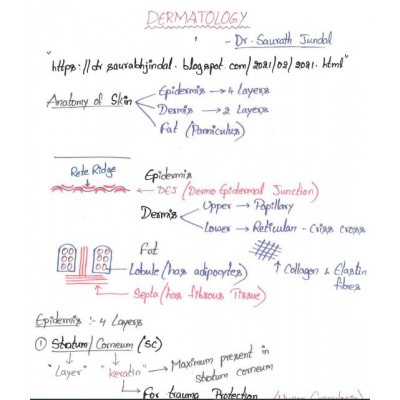 DERMATOLOGY
- Dr. Saurabh Jindal
"https://dr saurabhjindal.blogspot.com/2021/02/2021.html"
Anatomy of Skin
Epidermis → 4 Layers
Dermis → 2 Layers
Fat (Panniculus)
Rete Ridge
Epidermis
DEJ (Dermo Epidermal Junction)
Dermis
Upper → Papillary
Lower → Reticular - criss cross
Fat
Lobule (has adipocytes)
↑ Collagen & Elastin
fibres
Septa (has fibrous Tissue)
Epidermis :- 4 Layers
① Stratum / Corneum (SC)
"Layer" "keratin" → Maximum present in
stratum corneum
→ For trauma Protection